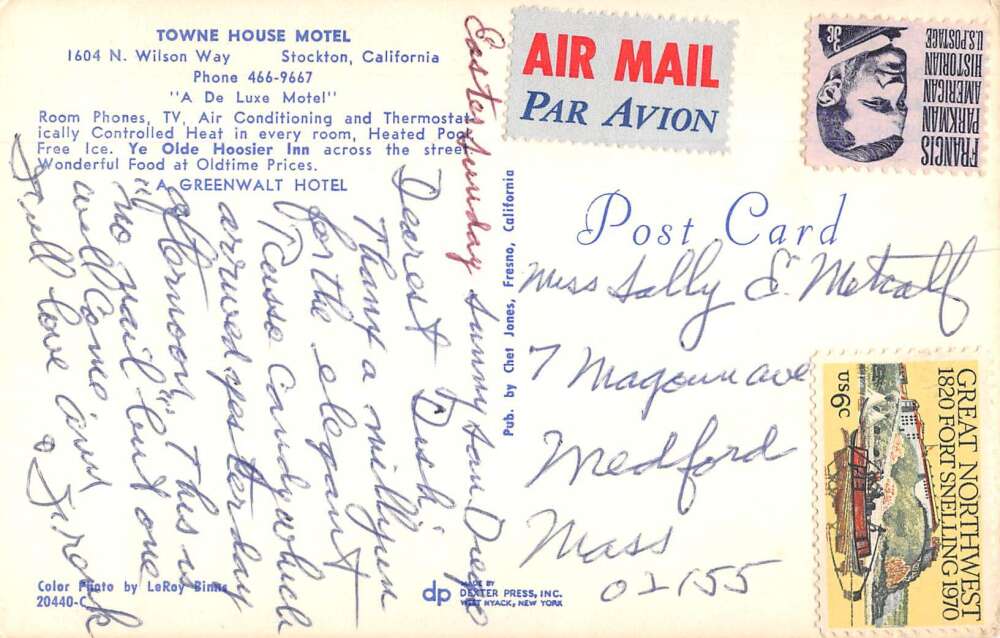 TOWNE HOUSE MOTEL
1604 N. Wilson Way Stockton, California
Phone 466-9667
"A De Luxe Motel"
Room Phones, TV, Air Conditioning and Thermostat-
ically Controlled Heat in every room, Heated Pool
Free Ice. Ye Olde Hoosier Inn across the street
Wonderful Food at Oldtime Prices.
A GREENWALT HOTEL
Easter Sunday Sunny San Diego
Dearest
Thank a millyun
for the elegant
Russe Candy which
arrived yesterday
afternoon. This is
no mail but one
will come
love
Color Photo by LeRoy Binns
20440-C
Pub. by Chet Jones, Fresno, California
dp MADE BY
DEXTER PRESS, INC.
WEST NYACK, NEW YORK
AIR MAIL
PAR AVION
3c
FRANCIS
PARKMAN
AMERICAN
HISTORIAN
U.S. POSTAGE
Post Card
Miss Sally E. Metcalf
7 Magoun ave
Medford
Mass
02155
US 6c
GREAT NORTHWEST
1820 FORT SNELLING 1970